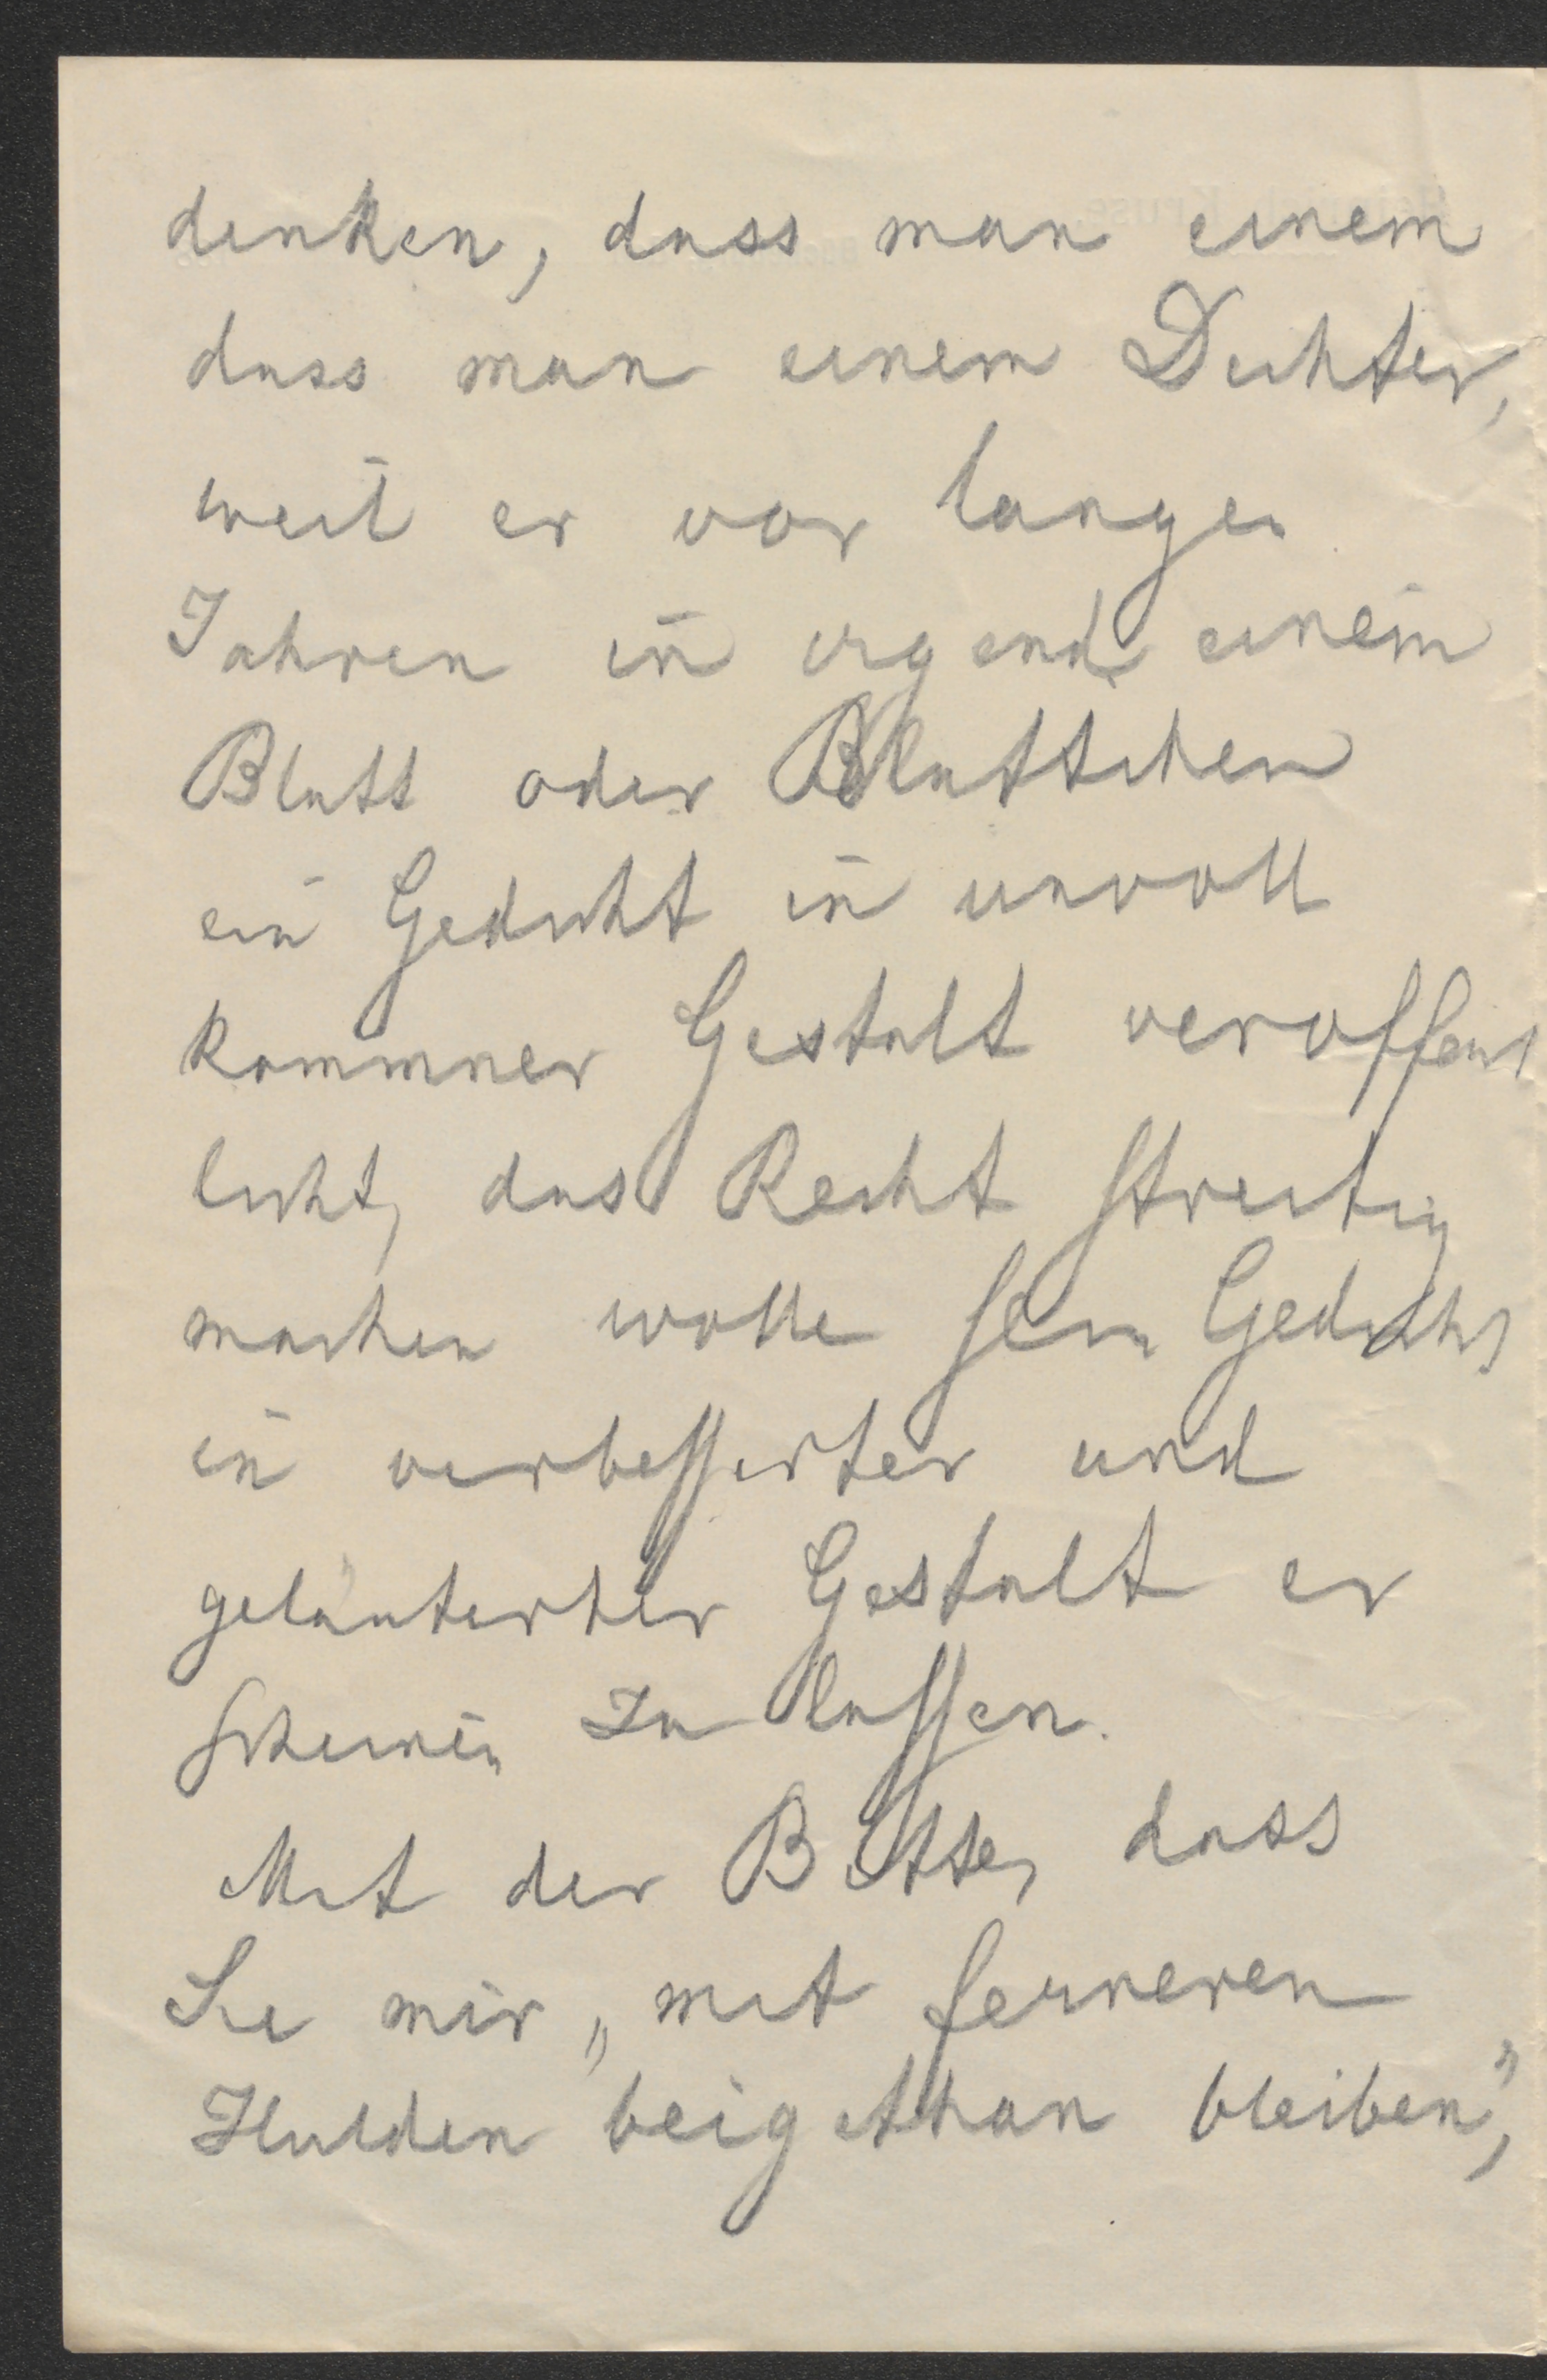 denken, dass man einem
dass man einem Dichter,
weil er vor langen
Jahren in irgend einem
Blatt oder Blattchen
ein Gedicht in unvoll
kommner Gestalt veroffent
licht, das Recht streitig
machen wolle sein Gedicht
in verbesserter und
geläuterter Gestalt er
scheinen zu lassen.
Mit der Bitte, dass
Sie mir „mit ferneren
Hulden beigethan bleiben”,